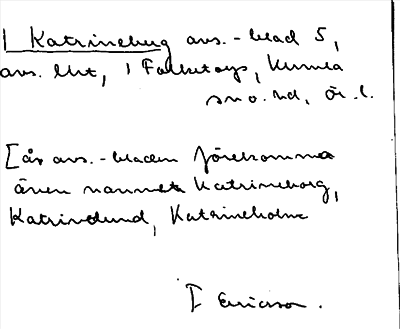 1 Katrineberg avs.-blad 5,
avs. lht, 1 Falketorp, Kumla
sn o. hd, ör. l.
[år avs.-bladen förekomma
även namnen Katrineborg,
Katrinelund, Katrineholm
F Ericson.